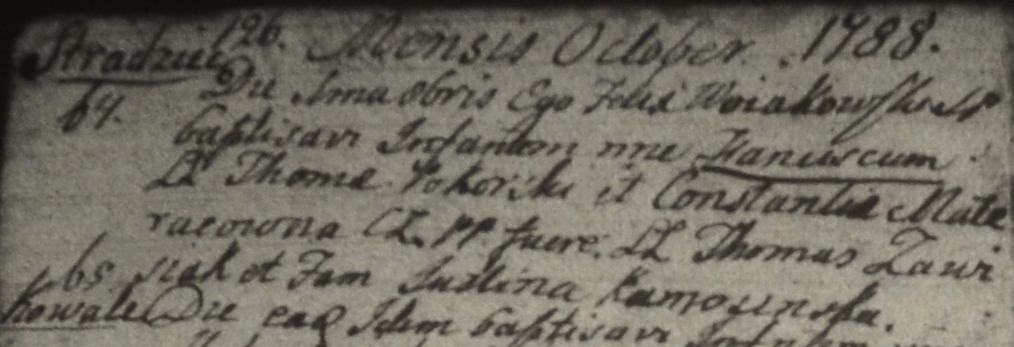 126. Mensis October. 1788.
Stradziel
64. Die 1ma 8bris Ego Felix Woiakowski
baptisavi Infantem nne Franciscum
LL Thomæ Pokorski et Constantia Mate
racowna CL. PP. fuere. LL Thomas Zawi
siak et Fam Justina Kamocinska.
65.
Kowale Die eaq Idem baptisavi